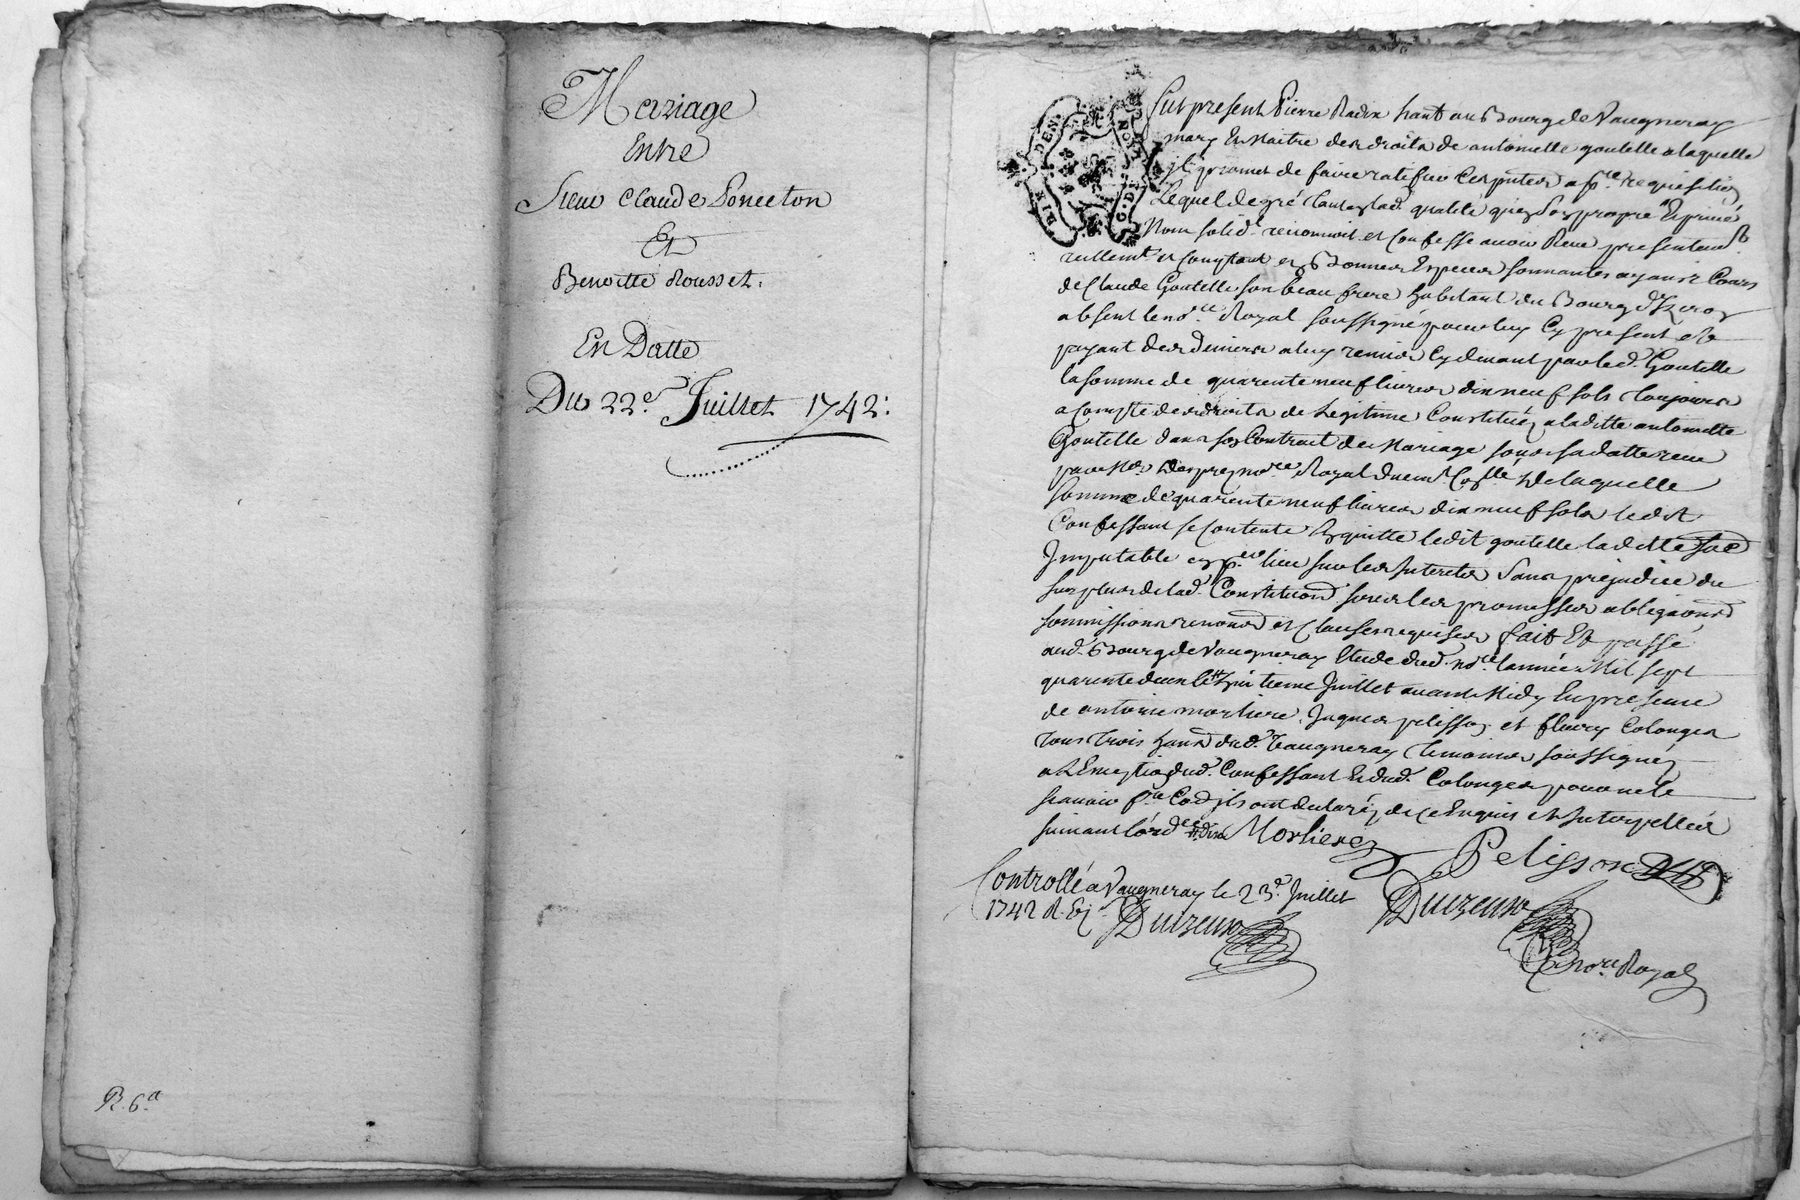 Mariage
Entre
Sieur Claude Ponceton
Et
Benoitte Rousset.
En Datte
Du 22e. Juillet 1742.
R. 6.d
GEN. DE LYON
Fut present Pierre Radix hant au Bourg de Vaugneray
mary Et Maitre des droits de antoinette goutelle a laquelle
il promet de faire ratifier Ces pntes a pre. requisition
Lequel de gré tant en lad. qualité qu'en son propre Et privé
Nom solid. reconnoit et Confesse avoir Receu presentemt.
reellemt. et Comptant en Bonnes Especes sonnantes ayants Cours
de Claude Goutelle son beau frere habitant du Bourg
absent le nore. Royal soussigné pour luy Cy present et
payant des deniers a luy remis Cy devant par led. Goutelle
la somme de quarente neuf livres dix neuf sols toujours
a Compte des droits de Legitime Constitués a laditte antoinette
Goutelle dans son Contract de Mariage sous sa datte receu
par Me. nore. Royal De laquelle
somme de quarente neuf livres dix neuf sols ledit
Confessant se Contente Et quitte ledit goutelle laditte
Imputable en pr. lieu sur les Interets Sans prejudice du
surplus de lad. Constitution sous les promesses obligaons
soumissions renonons et Clauses requises fait Et passé
aud. Bourg de Vaugneray Etude dud. nore. l'année Mil sept
quarente deux le Juillet avant Midy En presence
de antoine morliere, Jaques pelisson et fleury Colonges
tous trois hants dud. Vaugneray temoins soussignés
a L'Exception dud. Confessant Et dud. Colonges pour ne le
scavoir f.re Co. ils ont declaré de ce Enquis et Interpellés
suivant l'ord.ce Morliere
Pelisson
Controllé a Vaugneray le 23e. Juillet
1742 R.
Duizeuso
Duizeuso
nore. Royal